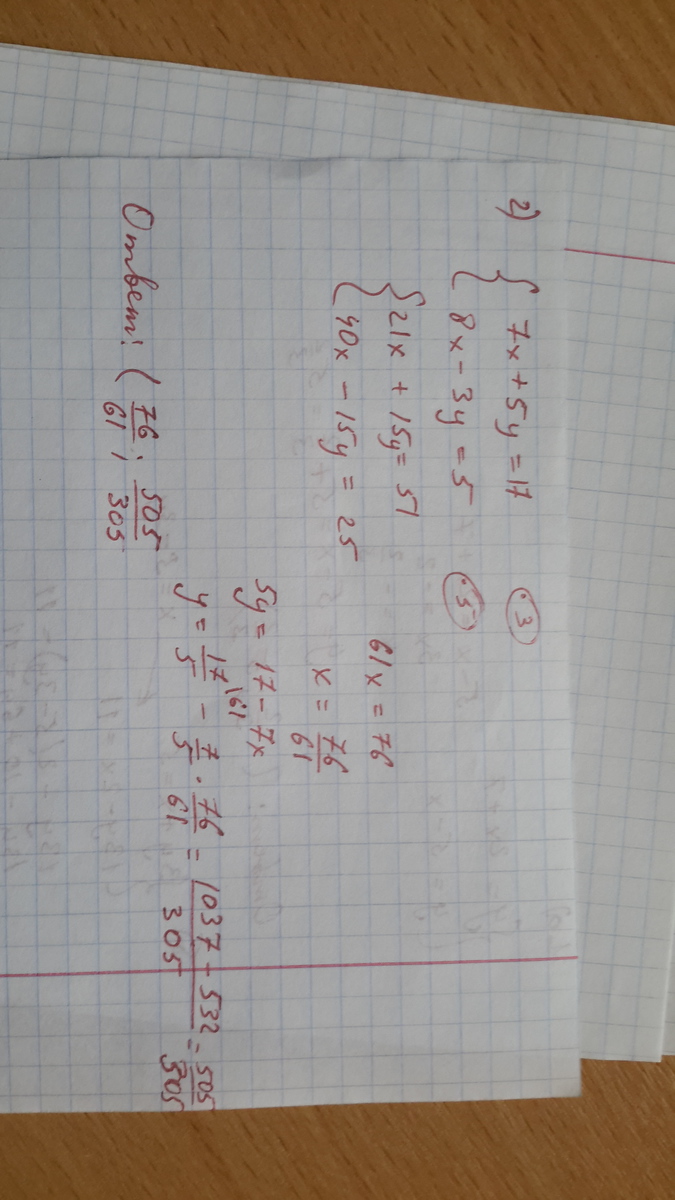 2) { 7x + 5y = 17 (·3)
8x - 3y = 5 (·5)
{ 21x + 15y = 51 61x = 76
40x - 15y = 25 x = 76/61
5y = 17 - 7x
y = 17/5 \61 - 7/5 · 76/61 = (1037 - 532)/305 = 505/305
Ответ: (76/61; 505/305